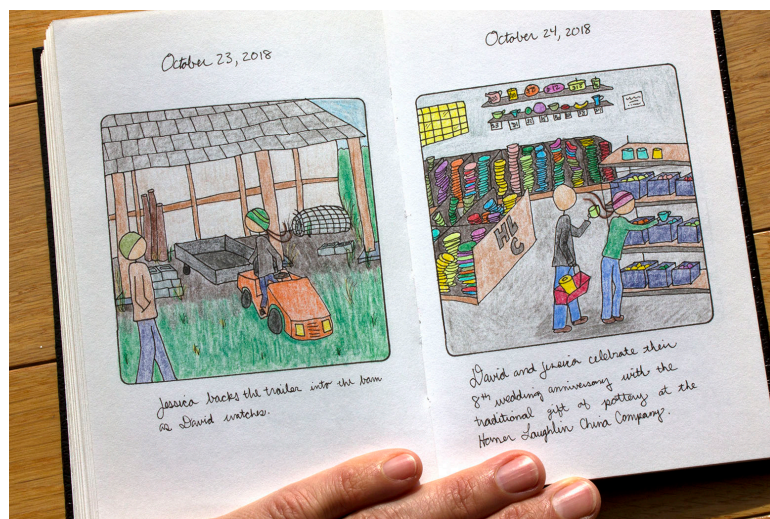 October 23, 2018
Jessica backs the trailer into the barn
as David watches.
October 24, 2018
HL
C
David and Jessica celebrate their
8th wedding anniversary with the
traditional gift of pottery at the
Homer Laughlin China Company.